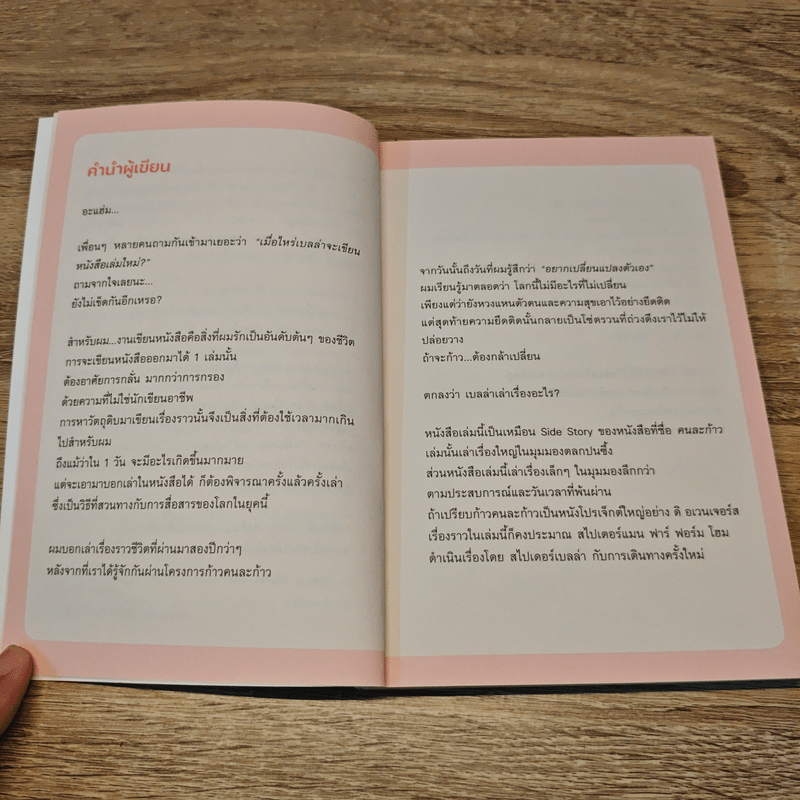 คำนำผู้เขียน
อะแฮ่ม...
เพื่อนๆ หลายคนถามกันเข้ามาเยอะว่า “เมื่อไหร่เบลล่าจะเขียน
หนังสือเล่มใหม่?”
ถามจากใจเลยนะ...
ยังไม่เข็ดกันอีกเหรอ?
สำหรับผม...งานเขียนหนังสือคือสิ่งที่ผมรักเป็นอันดับต้นๆ ของชีวิต
การจะเขียนหนังสือออกมาได้ 1 เล่มนั้น
ต้องอาศัยการกลั่น มากกว่าการกรอง
ด้วยความที่ไม่ใช่นักเขียนอาชีพ
การหาวัตถุดิบมาเขียนเรื่องราวนั้นจึงเป็นสิ่งที่ต้องใช้เวลามากเกิน
ไปสำหรับผม
ถึงแม้ว่าใน 1 วัน จะมีอะไรเกิดขึ้นมากมาย
แต่จะเอามาบอกเล่าในหนังสือได้ ก็ต้องพิจารณาครั้งแล้วครั้งเล่า
ซึ่งเป็นวิธีที่สวนทางกับการสื่อสารของโลกในยุคนี้
ผมบอกเล่าเรื่องราวชีวิตที่ผ่านมาสองปีกว่าๆ
หลังจากที่เราได้รู้จักกันผ่านโครงการก้าวคนละก้าว
จากวันนั้นถึงวันที่ผมรู้สึกว่า “อยากเปลี่ยนแปลงตัวเอง”
ผมเรียนรู้มาตลอดว่า โลกนี้ไม่มีอะไรที่ไม่เปลี่ยน
เพียงแต่ว่ายังหวงแหนตัวตนและความสุขเอาไว้อย่างยึดติด
แต่สุดท้ายความยึดติดนั้นกลายเป็นโซ่ตรวนที่ถ่วงดึงเราไว้ไม่ให้
ปล่อยวาง
ถ้าจะก้าว...ต้องกล้าเปลี่ยน
ตกลงว่า เบลล่าเล่าเรื่องอะไร?
หนังสือเล่มนี้เป็นเหมือน Side Story ของหนังสือที่ชื่อ คนละก้าว
เล่มนั้นเล่าเรื่องใหญ่ในมุมมองตลกปนซึ้ง
ส่วนหนังสือเล่มนี้เล่าเรื่องเล็กๆ ในมุมมองลึกกว่า
ตามประสบการณ์และวันเวลาที่พ้นผ่าน
ถ้าเปรียบก้าวคนละก้าวเป็นหนังโปรเจ็กต์ใหญ่อย่าง ดิ อเวนเจอร์ส
เรื่องราวในเล่มนี้ก็คงประมาณ สไปเดอร์แมน ฟาร์ ฟอร์ม โฮม
ดำเนินเรื่องโดย สไปเดอร์เบลล่า กับการเดินทางครั้งใหม่